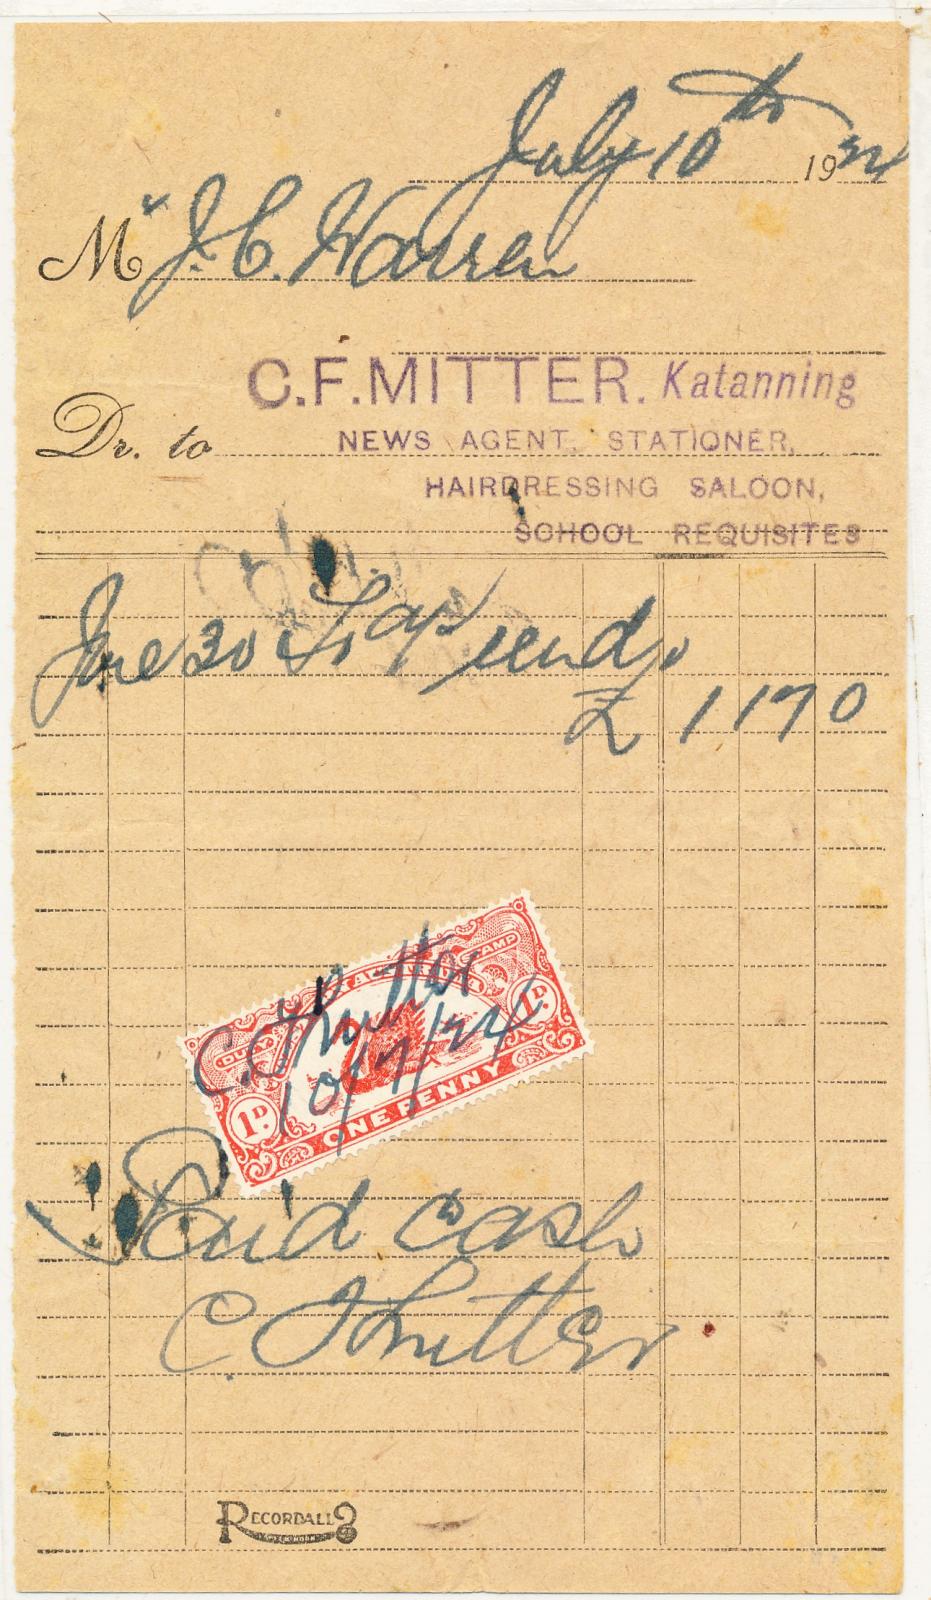 July 10th 1924
Mr J. C. Warren
C.F. MITTER. Katanning
Dr. to
NEWS AGENT, STATIONER,
HAIRDRESSING SALOON,
SCHOOL REQUISITES
June 30 To a/c rend
£ 1 17 0
DUTY STAMP
1D. 1D.
C. F. Mitter
10/7/24
ONE PENNY
Paid Cash
C F Mitter
RECORDALL